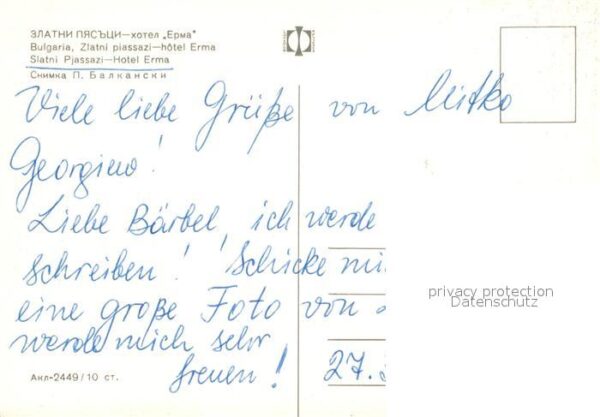 ЗЛАТНИ ПЯСЪЦИ—хотел „Ерма"
Bulgaria, Zlatni piassazi—hôtel Erma
Slatni Pjassazi—Hotel Erma
Снимка П. Балкански
Viele liebe Grüße von Mitko
Georgiew!
Liebe Bärbel, ich werde
schreiben! Schicke mi
eine große Foto von
werde mich sehr
freuen!
27.
privacy protection
Datenschutz
Акл-2449/10 ст.